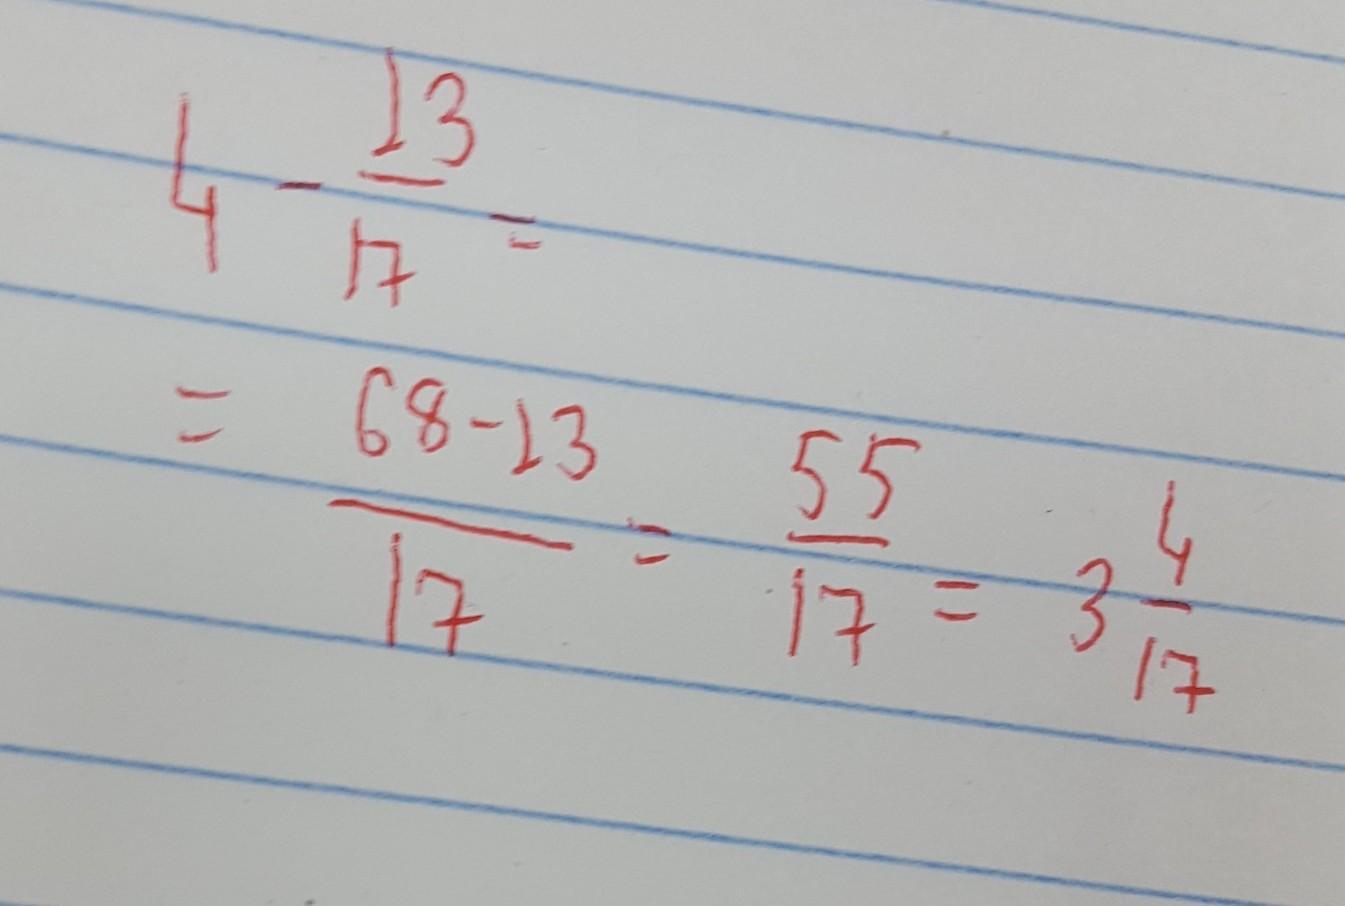 4 - 13/17 =
= (68-13)/17 = 55/17 = 3 4/17